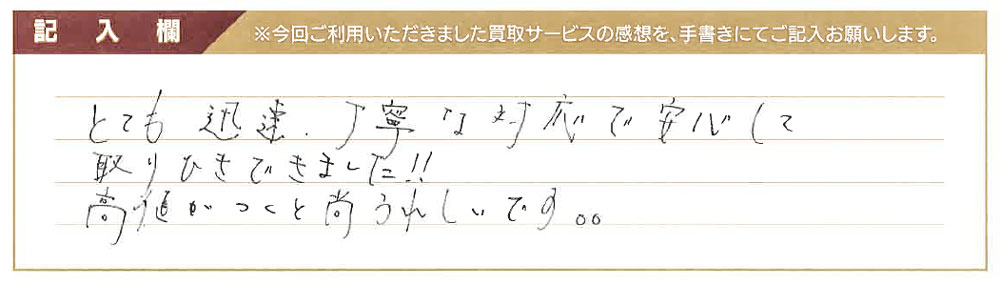 記入欄
※今回ご利用いただきました買取サービスの感想を、手書きにてご記入お願いします。
とても 迅速、丁寧な対応で安心して
取りひきできました!!
高値がつくと尚うれしいです。。